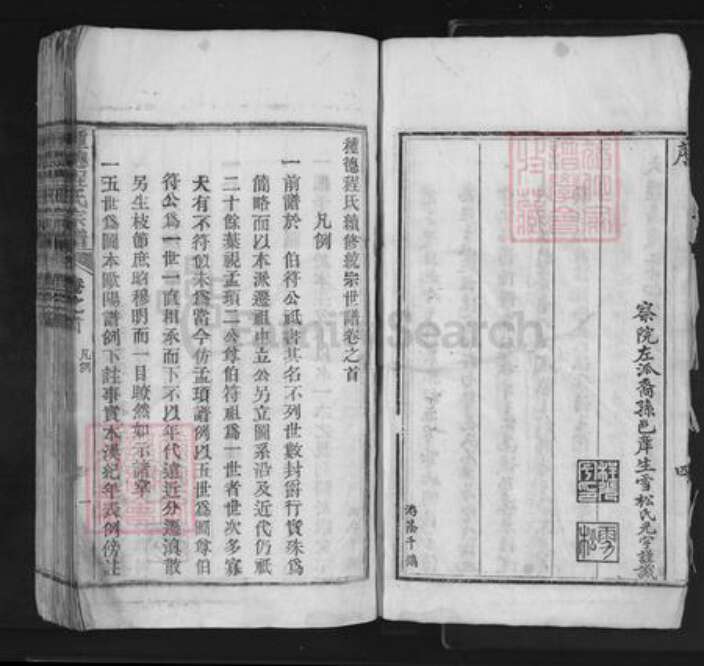 序
察院左派裔孫邑庠生雪松氏元宇謹識
四
種德程氏續修統宗世譜卷之首
凡例
一前譜於 伯符公祇書其名不列世數封爵行實殊爲
簡略而以本派遷祖中立公另立圖系沿及近代仍祇
二十餘葉視孟瓚二公尊伯符祖爲一世者世次多寡
大有不符似未爲當今仿孟瓚譜例以五世爲圖尊伯
符公爲一世一直相承而下不以年代遠近分遷浪散
另生枝節庶昭穆明而一目瞭然如示諸掌
一五世爲圖本歐陽譜例下註事實本漢紀年表例傍註
凡例
一
FamilySearch